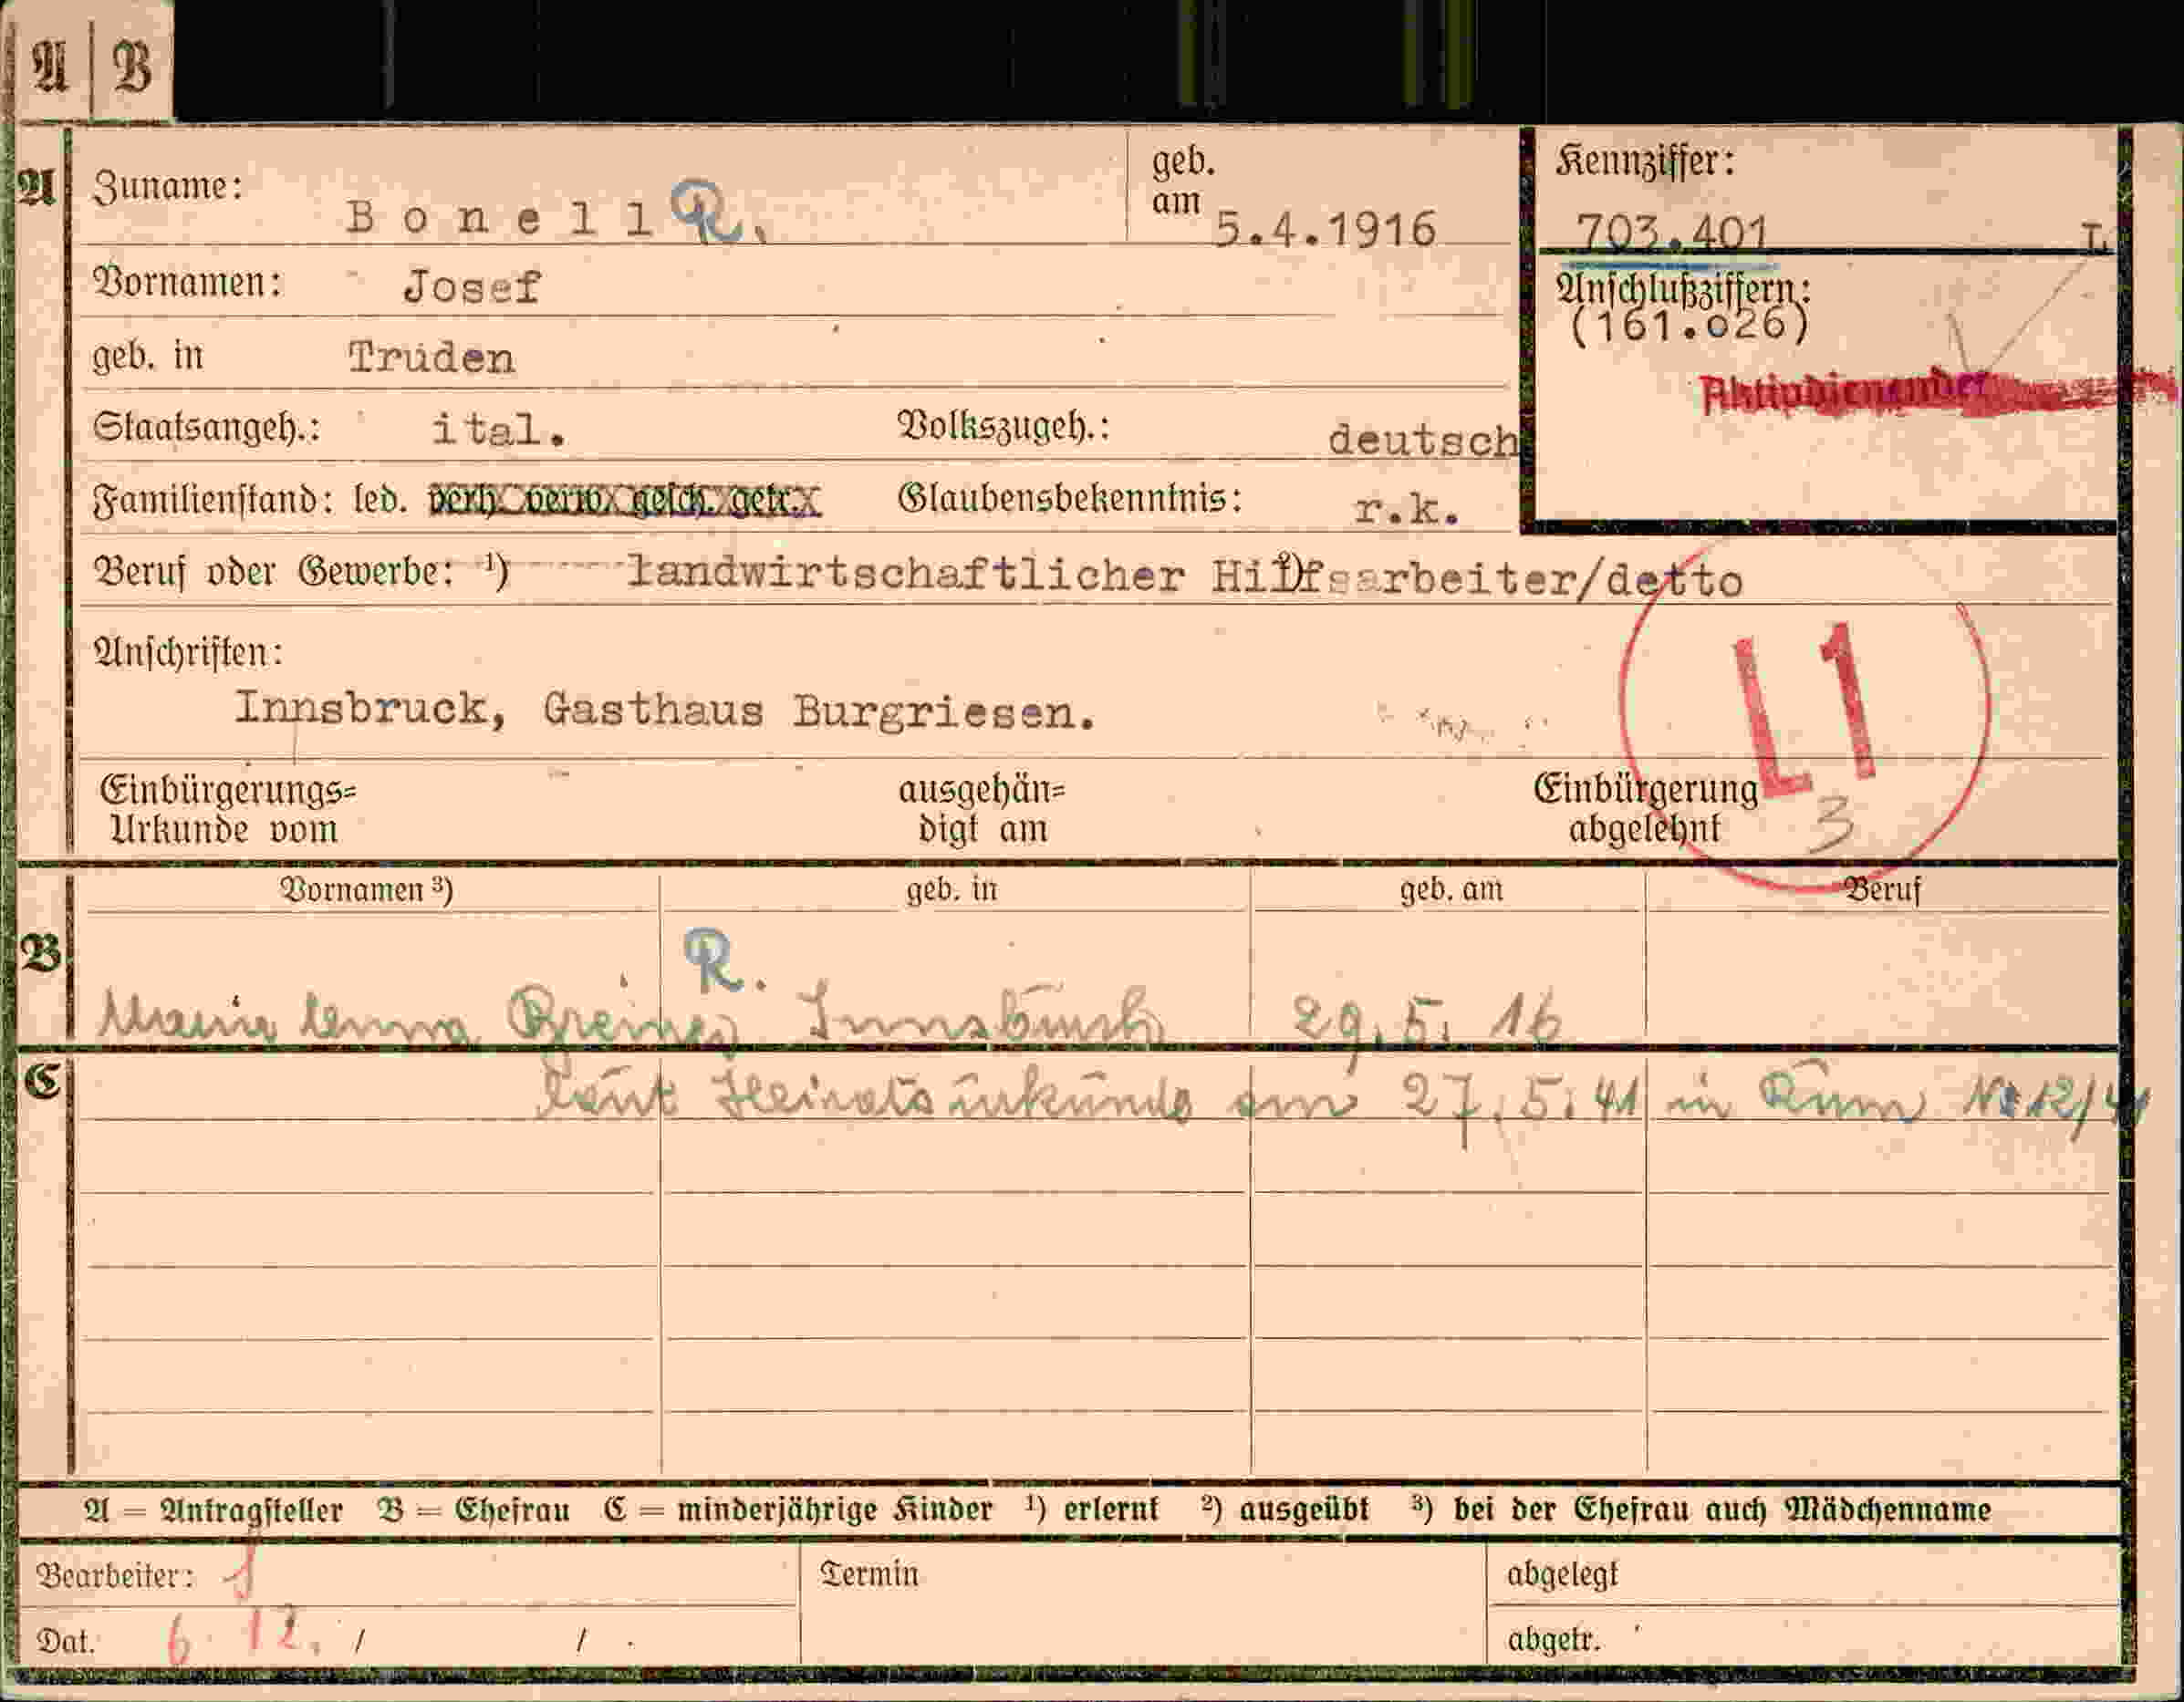 A | B
A
Zuname: Bonell R.
geb. am 5.4.1916
Kennziffer:
703.401 I
Vornamen: Josef
Anschlußziffern:
(161.026)
geb. in Truden
Aktivdienender
Staatsangeh.: ital. Volkszugeh.: deutsch
Familienstand: led. verh. verw. gesch. getr. Glaubensbekenntnis: r.k.
Beruf oder Gewerbe: ¹) landwirtschaftlicher Hilfsarbeiter/detto
²)
Anschriften:
L1
Innsbruck, Gasthaus Burgriesen.
Einbürgerungs=
Urkunde vom
ausgehän=
digt am
Einbürgerung
abgelehnt
3
Vornamen ³) geb. in geb. am Beruf
B
R.
Maria Anna Innsbruck 29.5.16
C
laut Heiratsurkunde am 27.5.41 in Rum Nr 12/41
A = Antragsteller B = Ehefrau C = minderjährige Kinder ¹) erlernt ²) ausgeübt ³) bei der Ehefrau auch Mädchenname
Bearbeiter:
Termin
abgelegt
Dat. 6.12. / / .
abgetr.